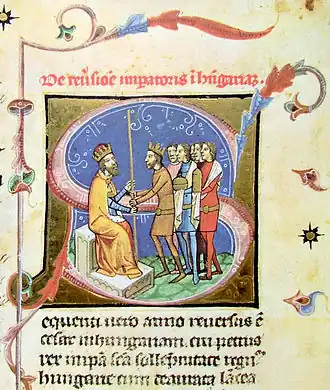 De reũsioẽ impatoris ĩ hũgariaz.
S
equenti uero anno reuersus ẽ
cesar in hungariam. cui petrus
rex in ipa sca sollẽpnitate regnũ
hungarie cum deaurata lãcea